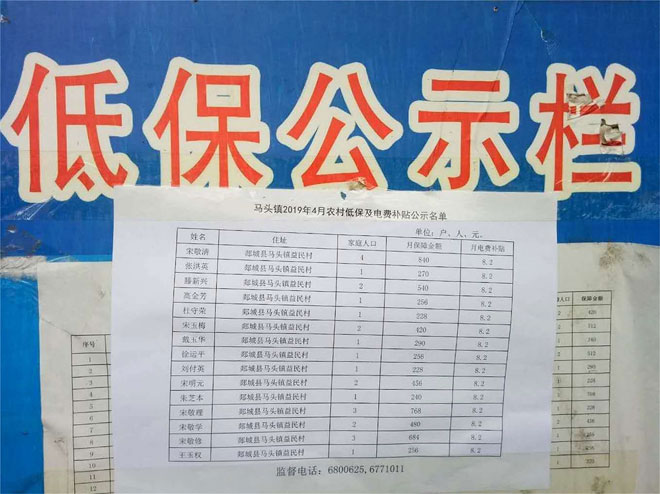 低保公示栏
马头镇2019年4月农村低保及电费补贴公示名单
单位：户、人、元、
姓名 住址 家庭人口 月保障金额 月电费补贴
宋敬清 郯城县马头镇益民村 4 840 8.2
张洪英 郯城县马头镇益民村 1 270 8.2
滕新兴 郯城县马头镇益民村 2 540 8.2
高金芳 郯城县马头镇益民村 1 256 8.2
杜守荣 郯城县马头镇益民村 1 228 8.2
宋玉梅 郯城县马头镇益民村 2 420 8.2
戴玉华 郯城县马头镇益民村 1 290 8.2
徐运平 郯城县马头镇益民村 1 256 8.2
刘付英 郯城县马头镇益民村 1 228 8.2
宋明元 郯城县马头镇益民村 2 456 8.2
朱芝本 郯城县马头镇益民村 1 240 8.2
宋敬理 郯城县马头镇益民村 3 768 8.2
宋敬学 郯城县马头镇益民村 2 480 8.2
宋敬修 郯城县马头镇益民村 3 684 8.2
王玉权 郯城县马头镇益民村 1 256 8.2
监督电话：6800625,6771011
序号
1
2
3
4
5
6
7
8
9
10
11
12
人口 保障金额